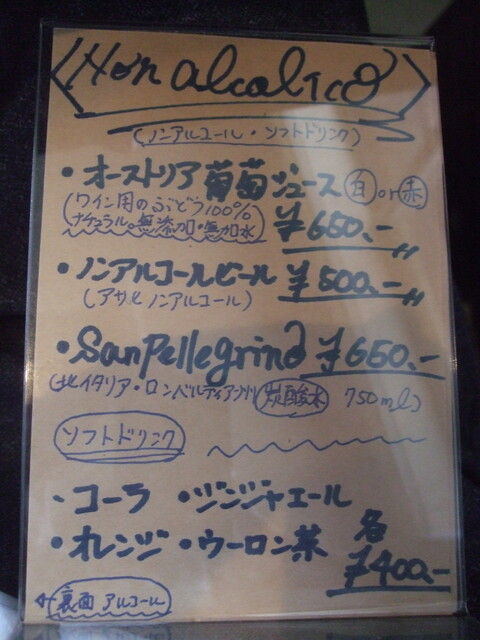 Non alcolico
(ノンアルコール・ソフトドリンク)
・オーストリア葡萄ジュース 白or赤
(ワイン用のぶどう100%
ナチュラル。無添加・無加水) ¥650.-
・ノンアルコールビール ¥500.-
(アサヒノンアルコール)
・SanPellegrino ¥650.-
(北イタリア・ロンベルディア州 炭酸水 750ml)
ソフトドリンク
・コーラ ・ジンジャエール
・オレンジ ・ウーロン茶 各
¥400.-
←裏面 アルコール